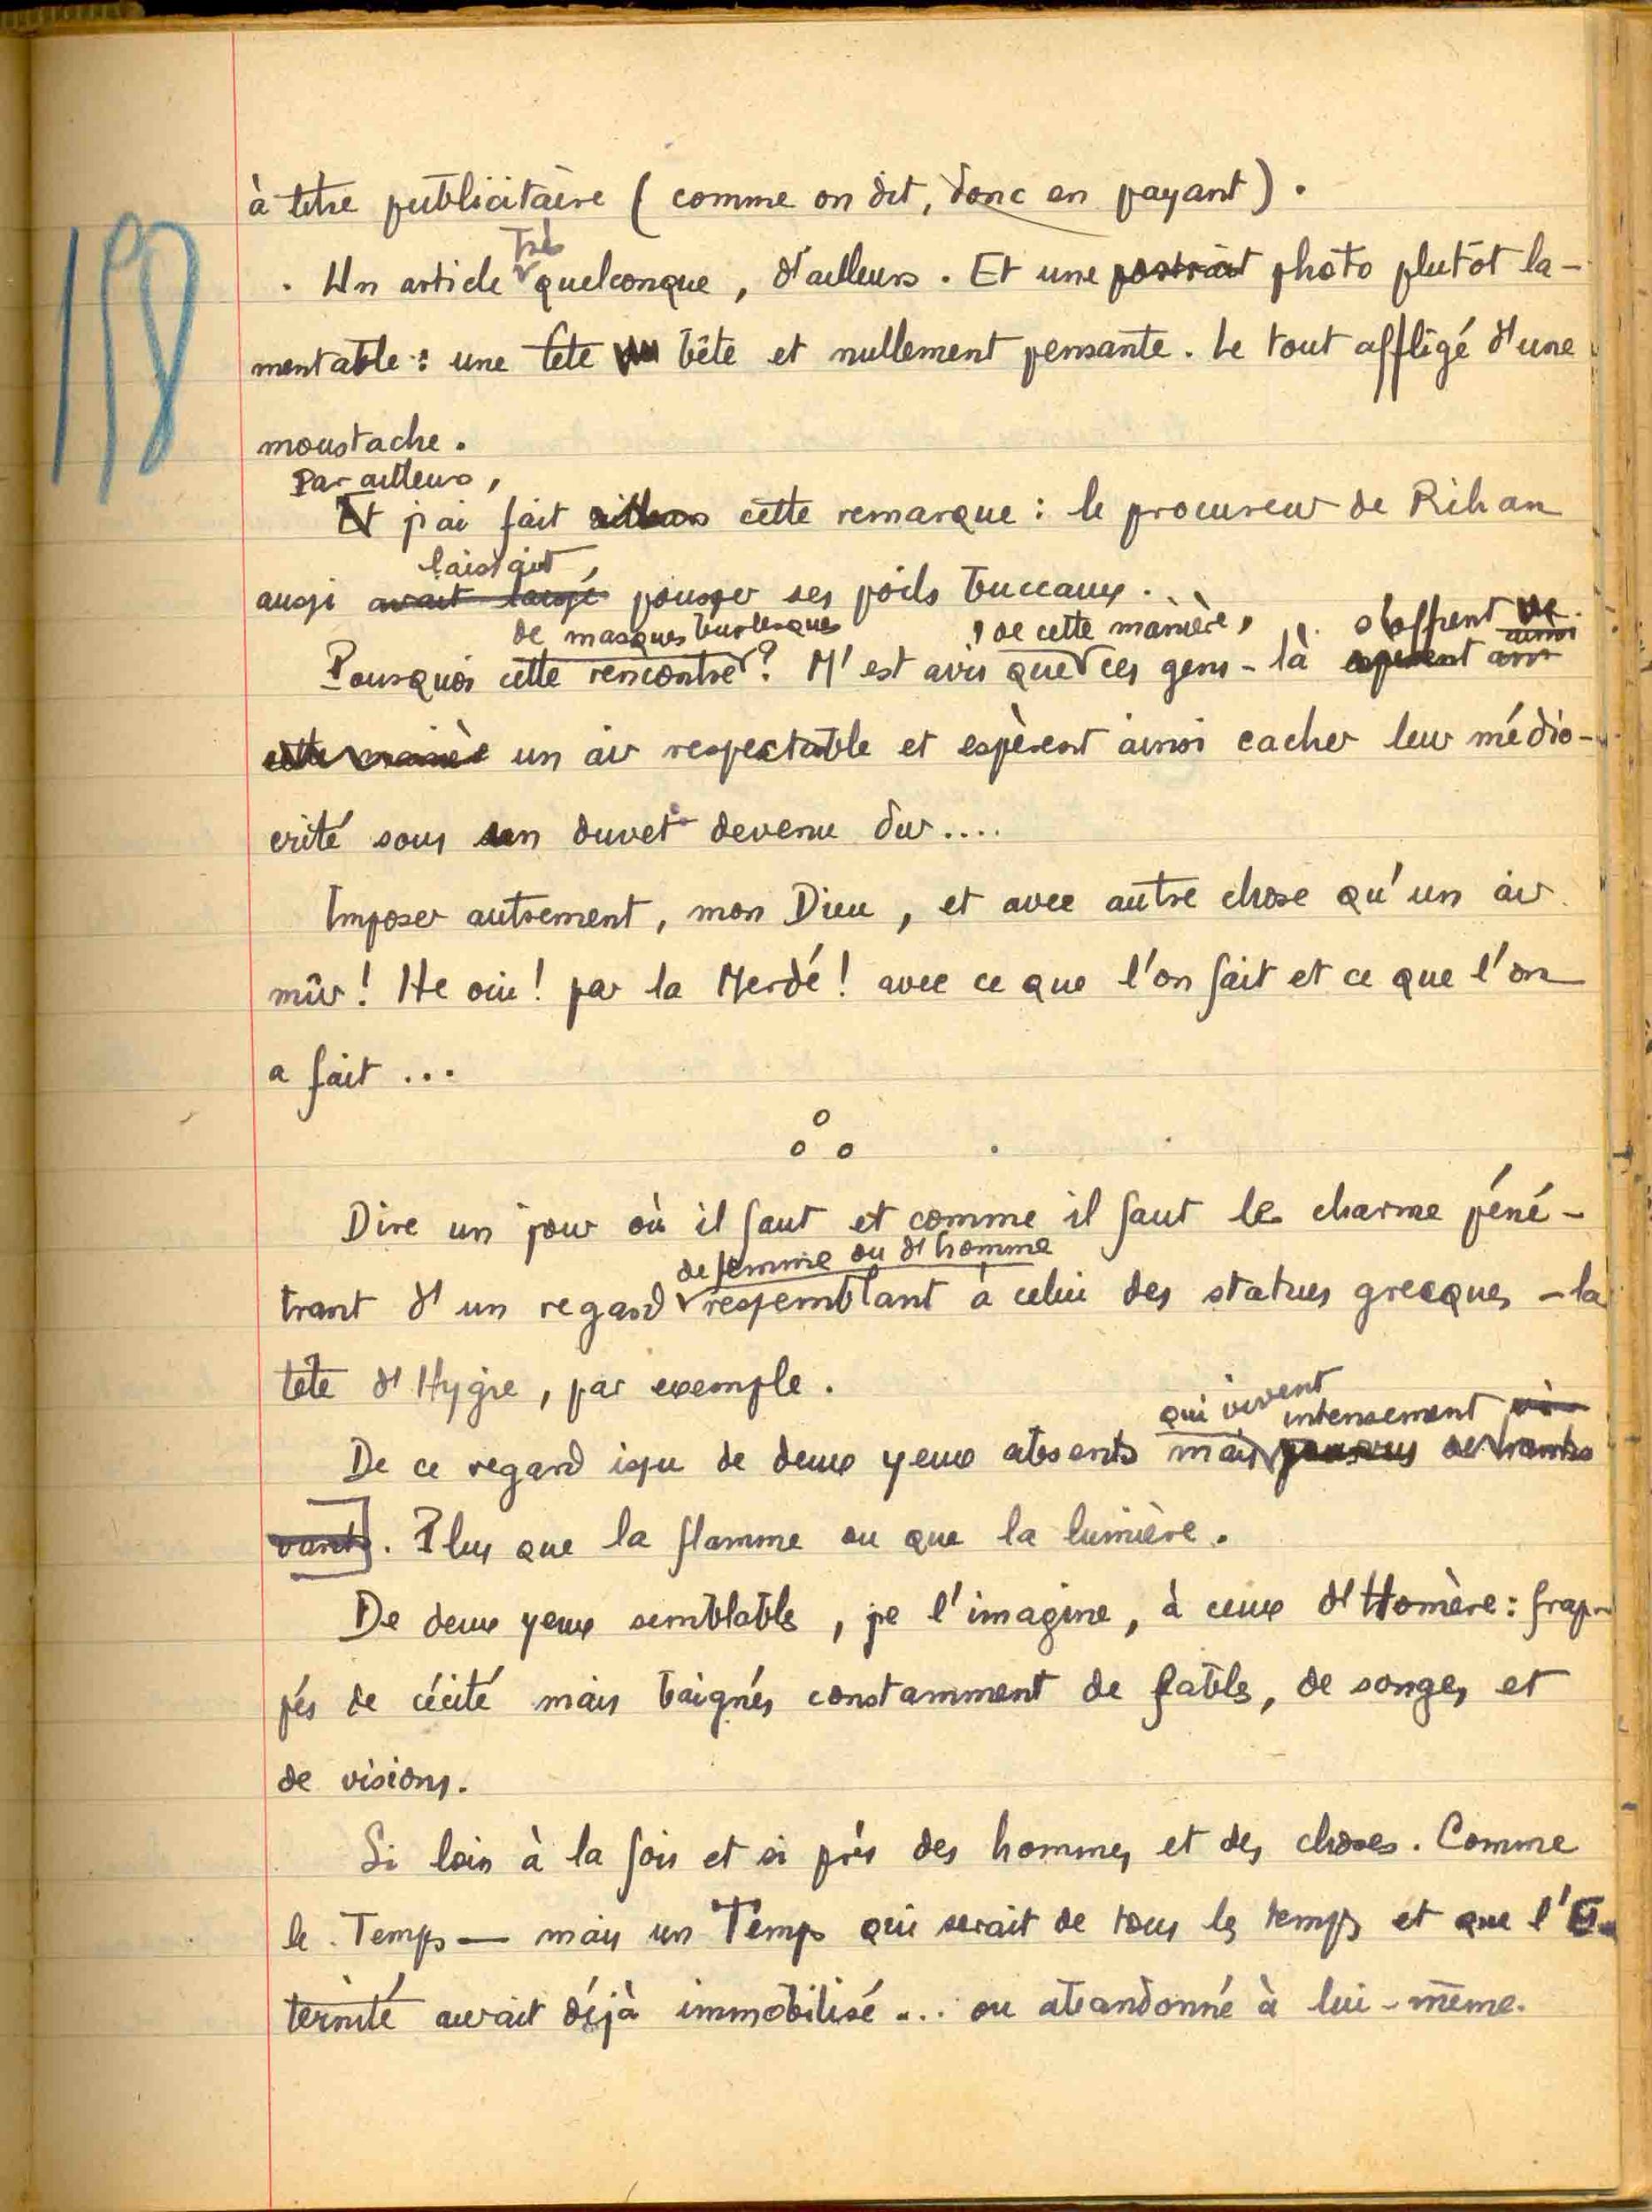 198
à titre publicitaire (comme on dit, donc en payant).
Très
. Un article quelconque, d'ailleurs. Et une portrait photo plutôt la-
mentable : une tête bête et nullement pensante. Le tout affligé d'une
moustache.
Par ailleurs,
Et j'ai fait ailleurs cette remarque : le procureur de Rihan
laissait,
aussi avait laissé pousser ses poils buccaux.
de masques burlesques , de cette manière, s'offrent
ainsi
Pourquoi cette rencontre ? M'est avis que ces gens-là espèrent
cette manière un air respectable et espèrent ainsi cacher leur médio-
crité sous un duvet devenu dur....
Imposer autrement, mon Dieu, et avec autre chose qu'un air
mûr ! He oui ! par la Merdé ! avec ce que l'on fait et ce que l'on
a fait ...
Dire un jour où il faut et comme il faut le charme péné-
de femme ou d'homme
trant d'un regard ressemblant à celui des statues grecques - la
tête d'Hygie, par exemple.
qui vivent
intensement
De ce regard issu de deux yeux absents mais
vants. Plus que la flamme ou que la lumière.
De deux yeux semblables, je l'imagine, à ceux d'Homère : frap-
pés de cécité mais baignés constamment de fables, de songes et
de visions.
Si loin à la fois et si près des hommes et des choses. Comme
le Temps — mais un Temps qui serait de tous les temps et que l'E-
ternité aurait déjà immobilisé ... ou abandonné à lui-même.